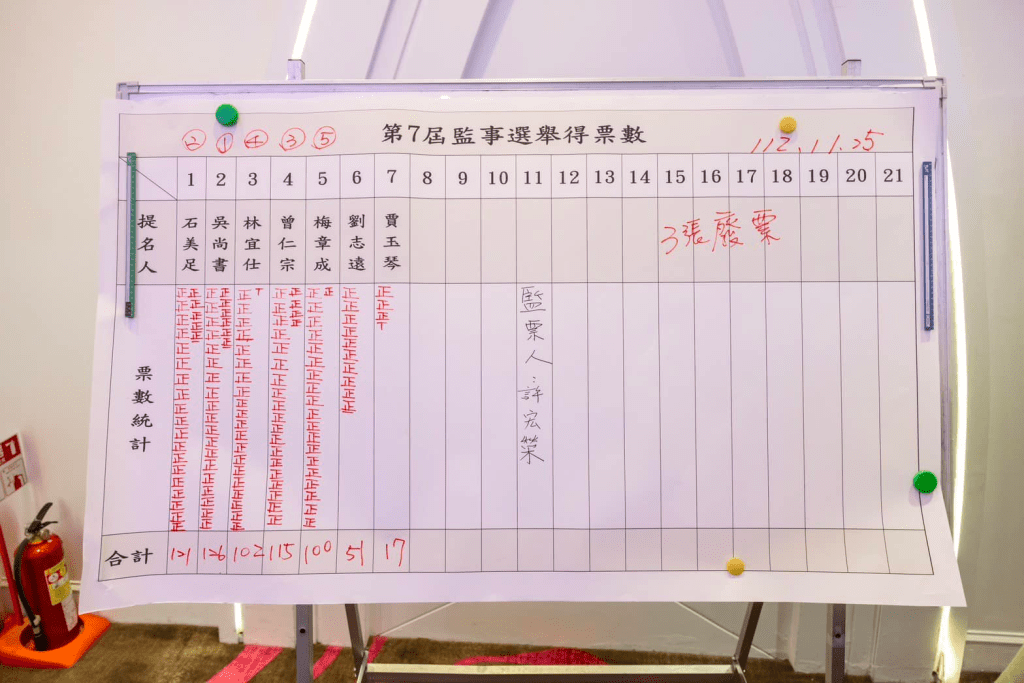 ② ① ④ ③ ⑤ 第7屆監事選舉得票數 112.11.25
1 2 3 4 5 6 7 8 9 10 11 12 13 14 15 16 17 18 19 20 21
提名人 石美足 吳尚書 林宜仕 曾仁宗 梅章成 劉志遠 賈玉琴
3張廢票
票數統計
監票人:許宏榮
合計 121 126 102 115 100 51 17